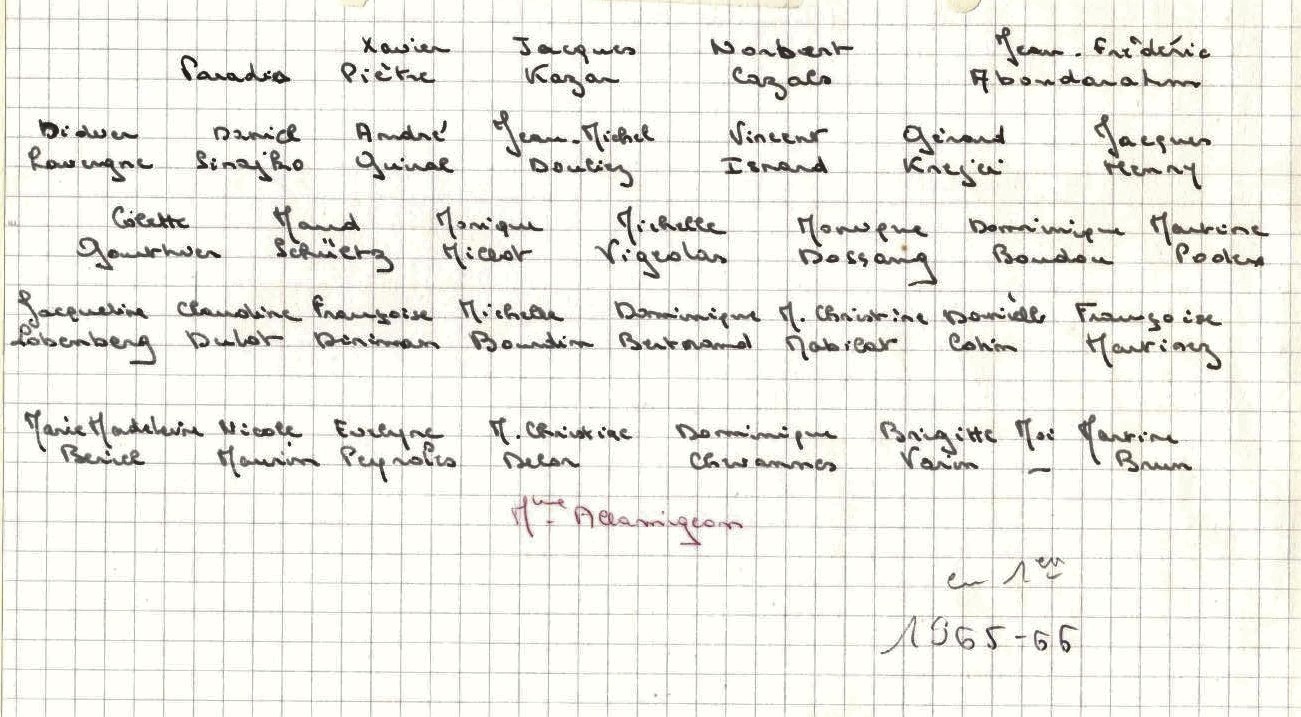 Xavier Jacques Norbert Jean-Frédéric
Paradis Piètre Kazan Cazals Abondarahm
Didier Daniel André Jean-Michel Vincent Gérard Jacques
Lavergne Guinal Douliez Isnard Krejci Henry
Colette Maud Monique Michelle Monique Dominique Martine
Schüetz Millot Vigeolas Dossang Boudou
Jacqueline Claudine Françoise Michelle Dominique M. Christine Danièle Françoise
Lobenberg Dulot Boudin Bertrand Mabilat Cohin Martinez
Marie Madeleine Nicole Evelyne M. Christine Dominique Brigitte Moi Martine
Maurin Peyrolis Delon Chavannes Varin — Brun
Mme Allamigeon
en 1ère
1965-66